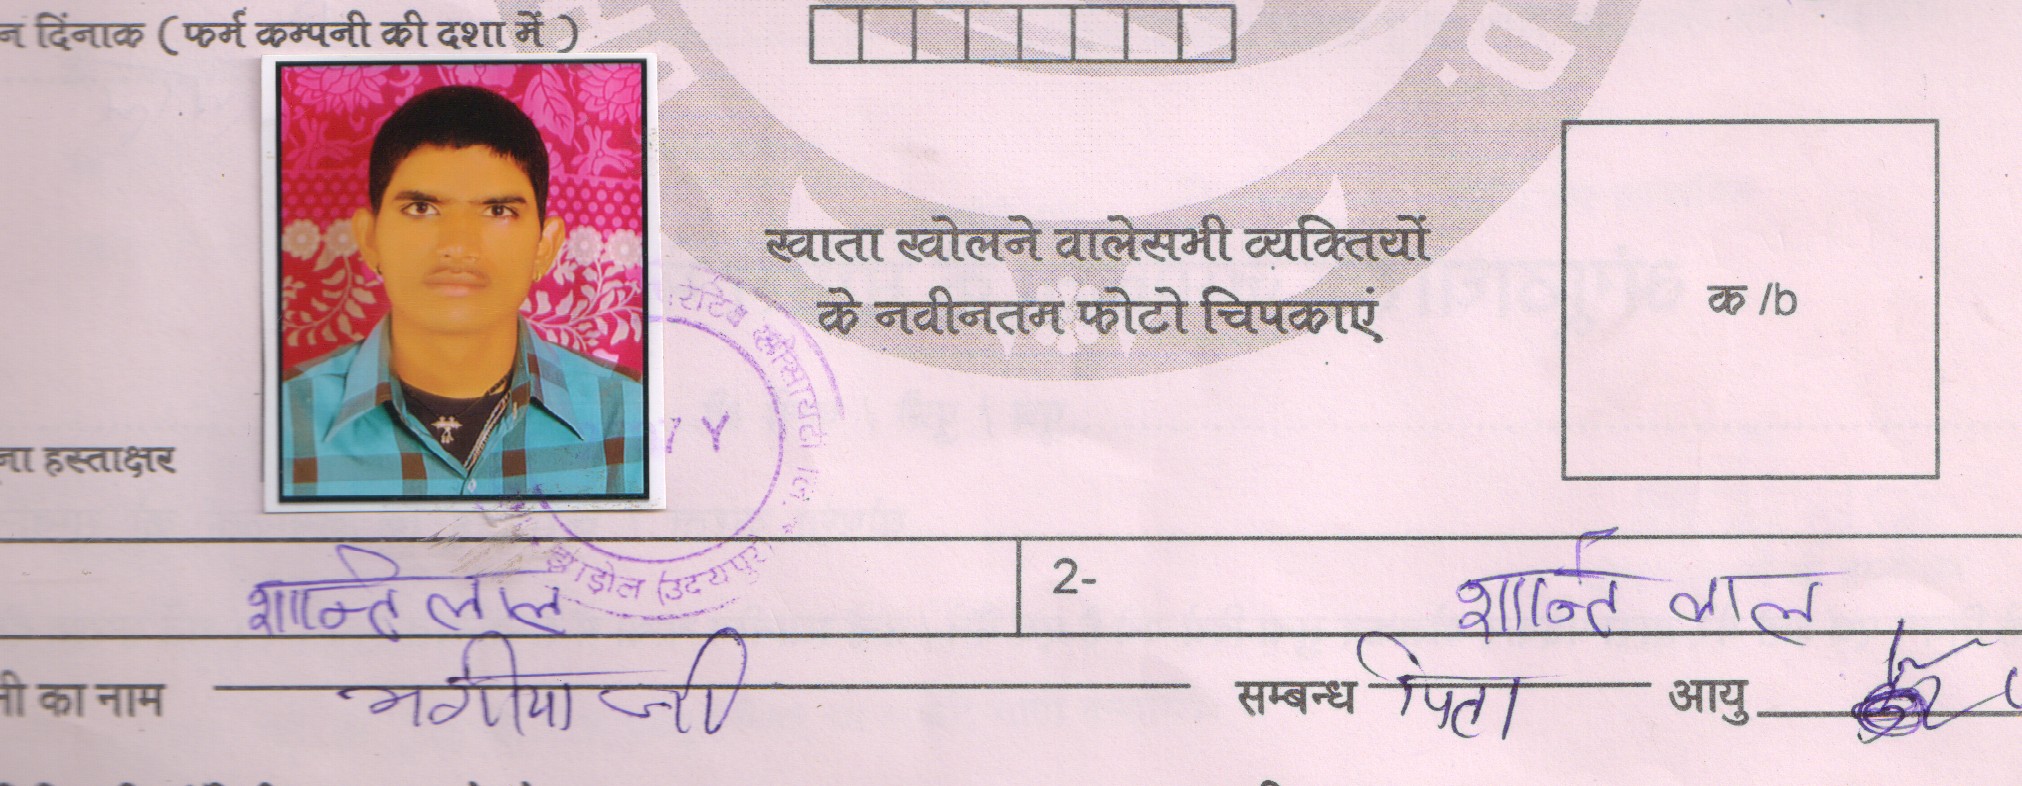 न दिंनाक ( फर्म कम्पनी की दशा में )
खाता खोलने वालेसभी व्यक्तियों
के नवीनतम फोटो चिपकाएं
क /b
ना हस्ताक्षर
सोसायटी लि.
झाडोल (उदयपुर)
शान्ति लाल
2-
शान्ति लाल
नी का नाम
जी
सम्बन्ध पिता
आयु